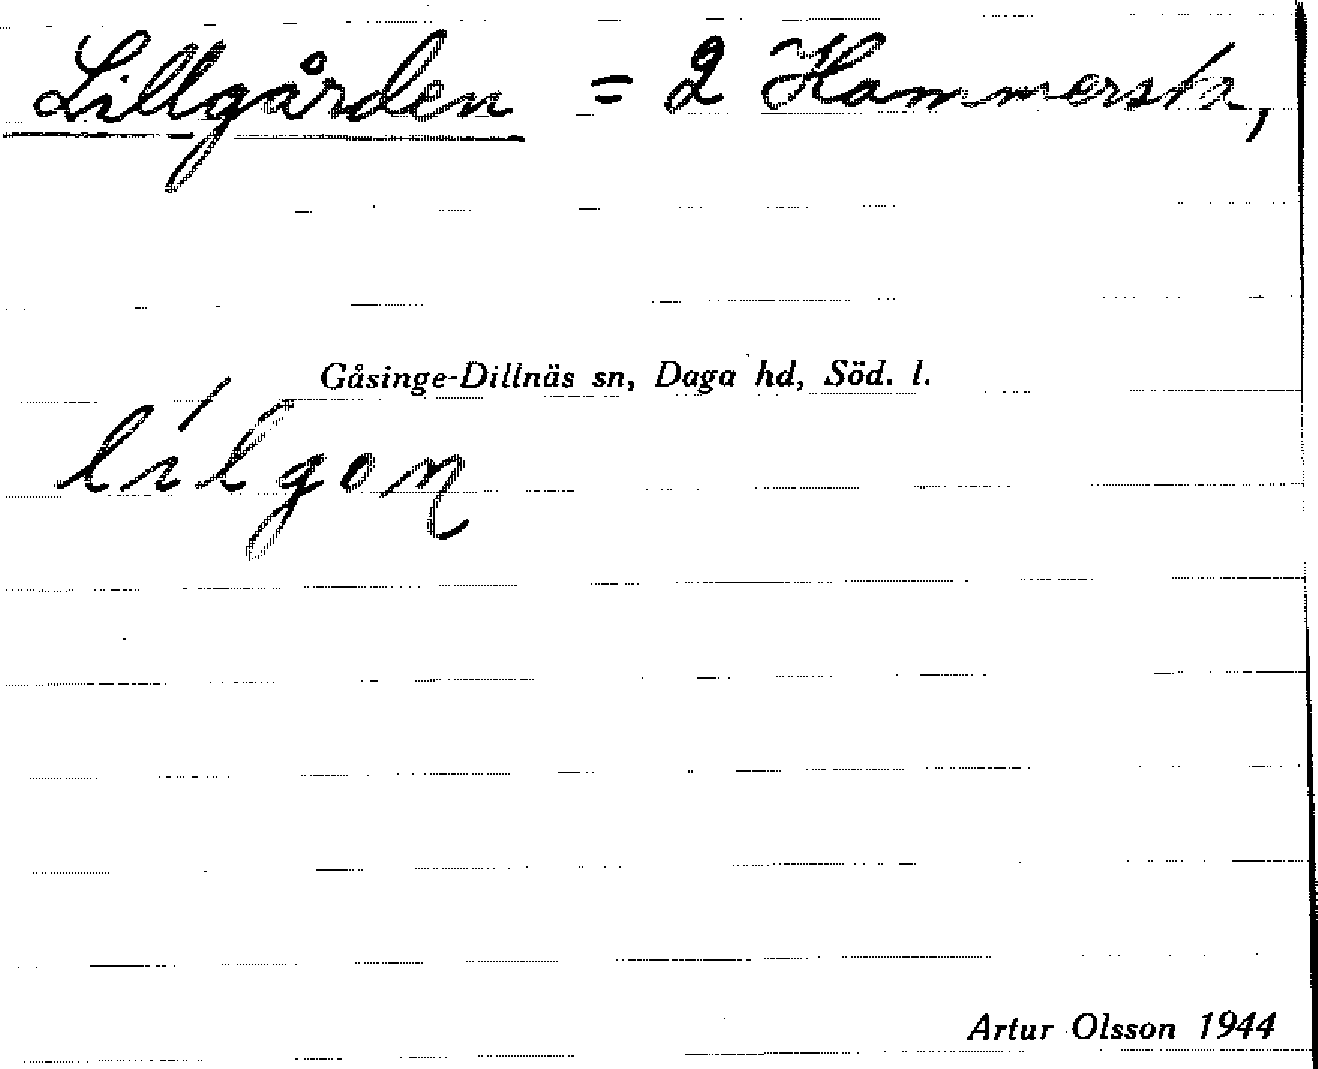 Lillgården = 2 Hammersta,
Gåsinge-Dillnäs sn, Daga hd, Söd. l.
lílgoɳ
Artur Olsson 1944